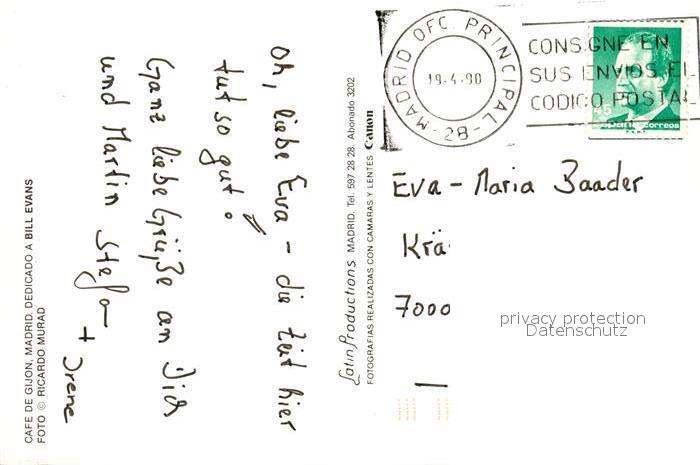 MADRID OFC. PRINCIPAL
19-4-90
-28-
CONSIGNE EN
SUS ENVIOS EL
CODIGO POSTAL
45
Correos
Oh, liebe Eva – die Zeit hier
tut so gut!
Ganz liebe Grüße an Dich
und Martin Stefan
+ Irene
Eva-Maria Baader
Krä
7000
privacy protection
Datenschutz
Latin Productions MADRID. Tel. 597 28 28. Abonado 3202
FOTOGRAFIAS REALIZADAS CON CAMARAS Y LENTES Canon
CAFE DE GIJON, MADRID. DEDICADO A BILL EVANS
FOTO © RICARDO MURAD